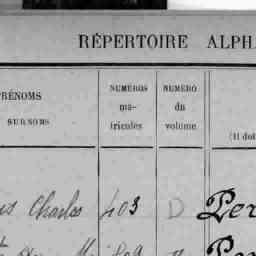 RÉPERTOIRE ALPH
PRÉNOMS
SURNOMS
NUMÉROS
ma-
tricules
NUMÉRO
du
volume
(Il doi
Charles 403 D Per